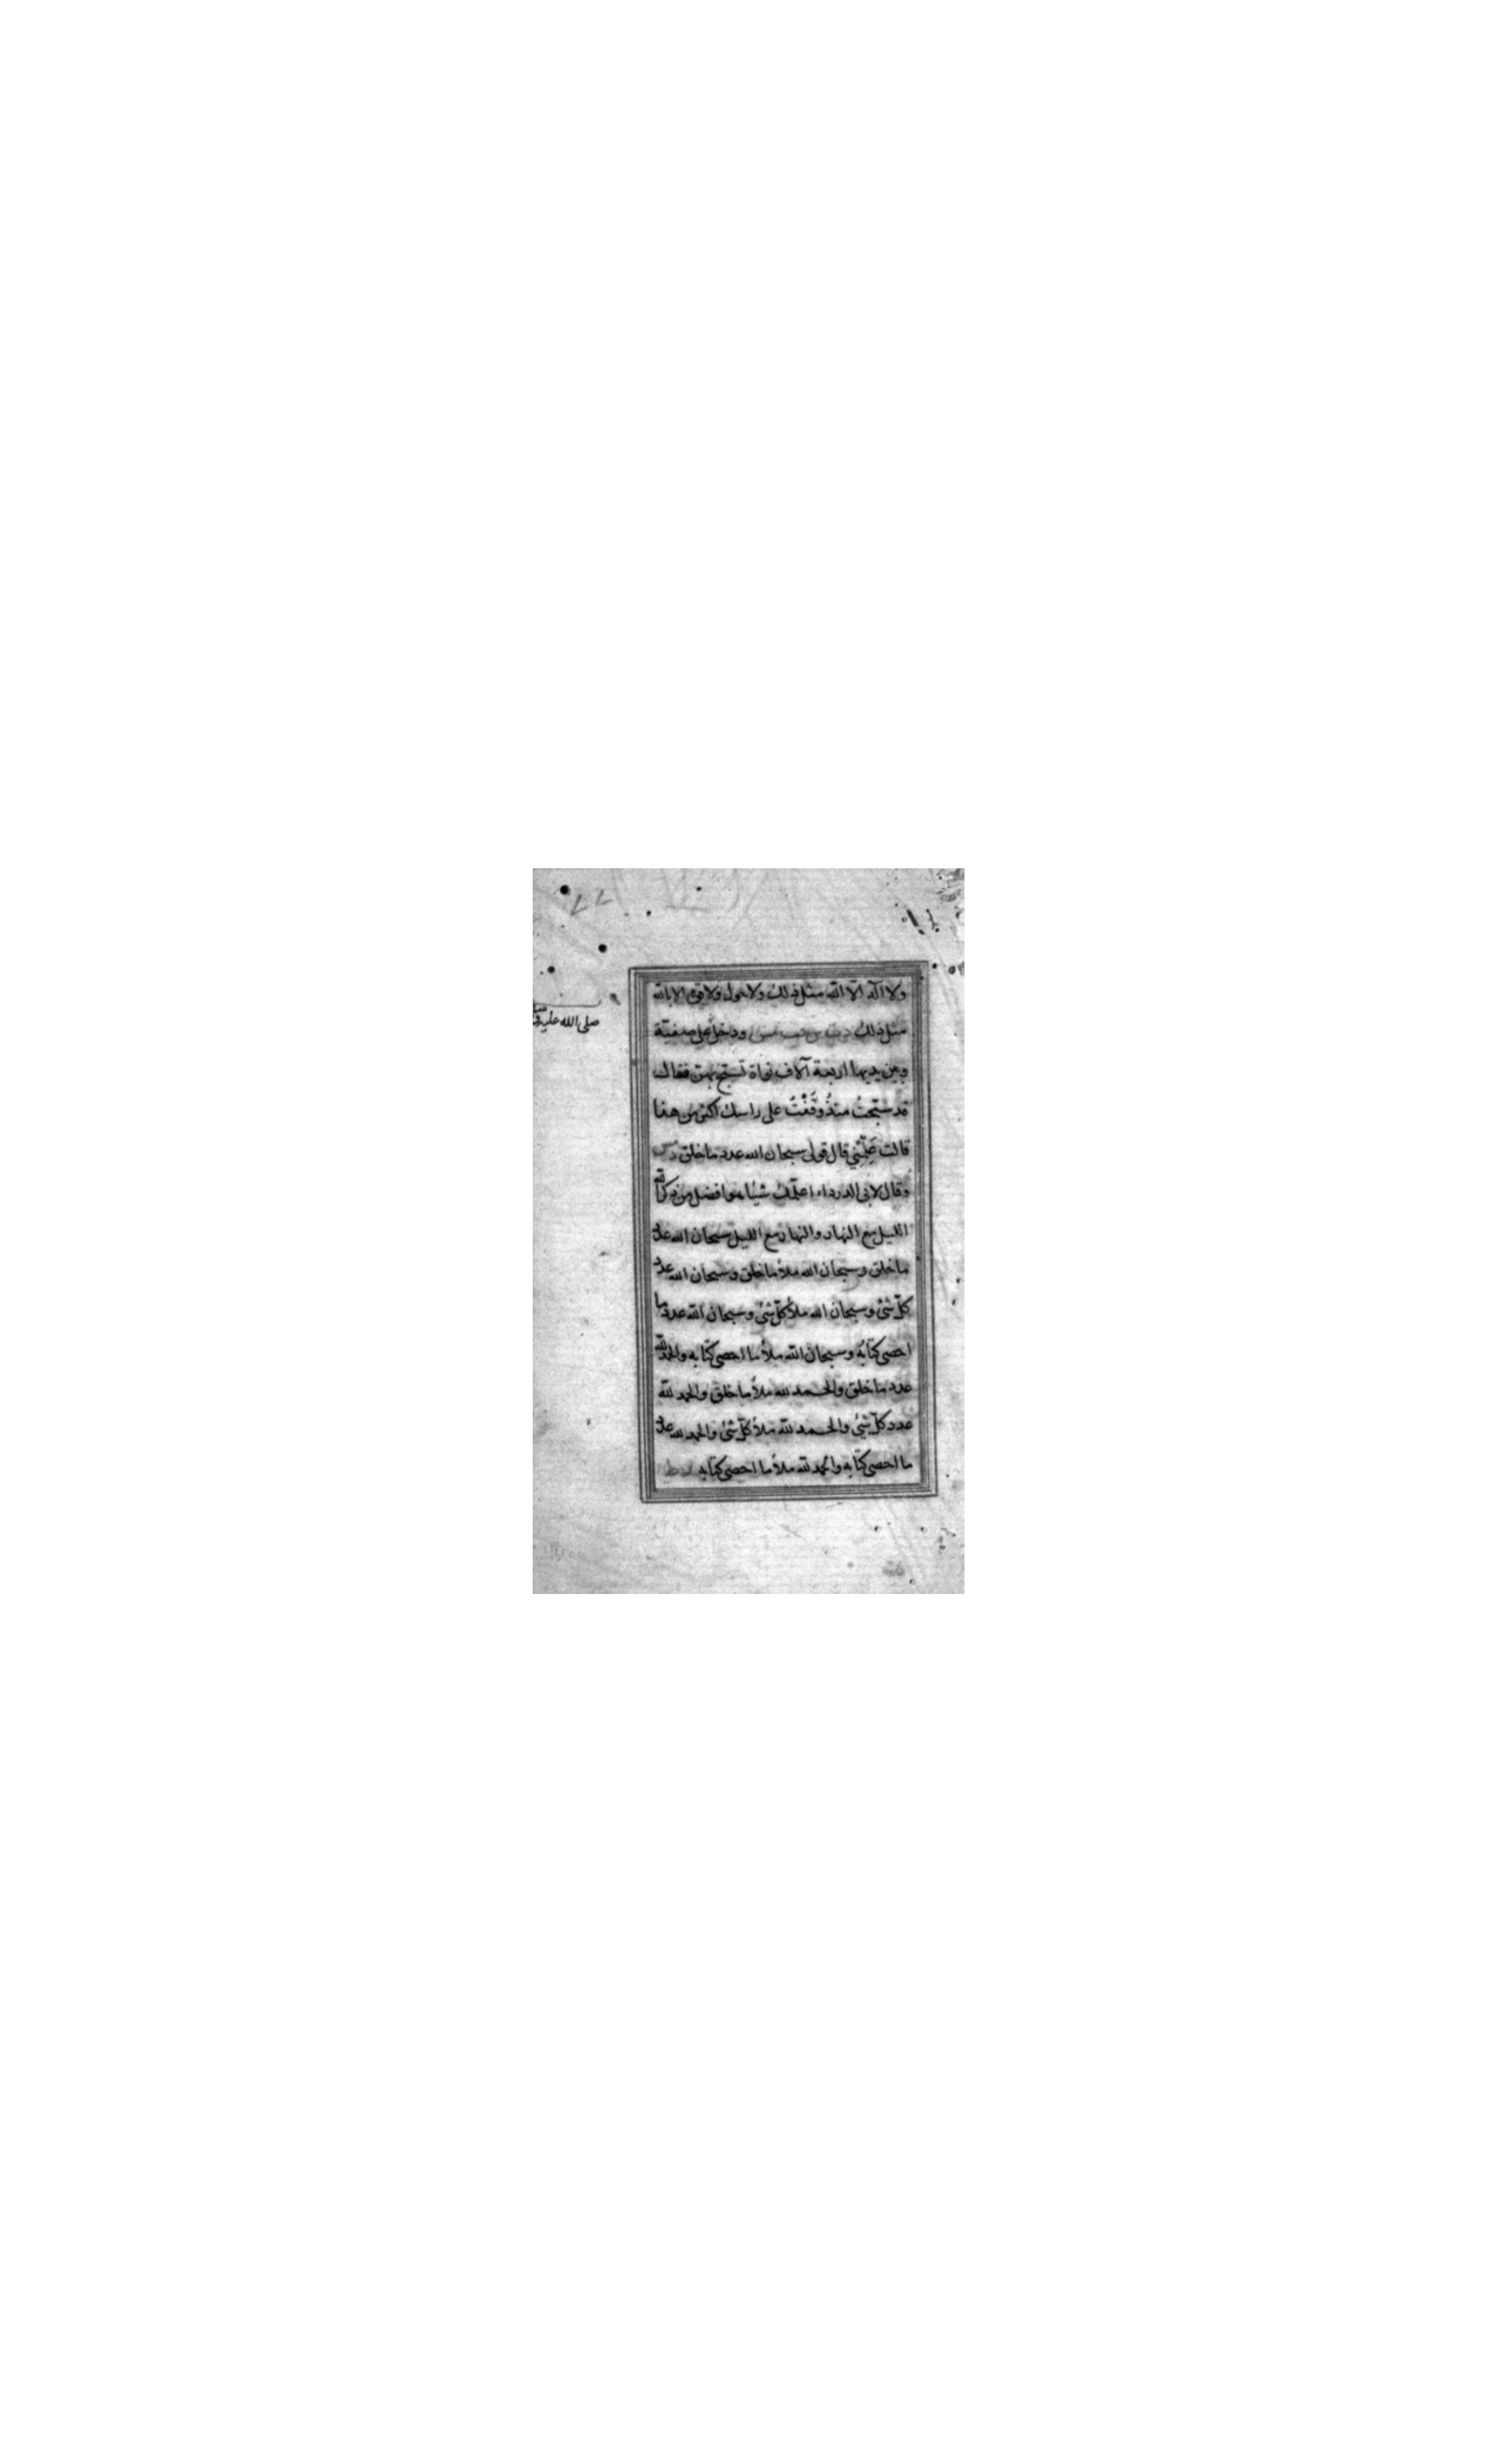 ولا اله الا الله مثل ذلك ولا حول ولا قوة الا بالله
مثل ذلك د ت س حب مس ودخل على صفيّة
وبين يديها اربعة آلاف نواة تسبّح بهن فقال
قد سبّحتُ منذُ وقَفْتُ على راسك اكثر من هذا
قالت عَلِّمْني قال قولى سبحان الله عدد ما خلق د مس
وقال لابى الدرداء اعلّمك شيئا هو افضل من ذكر الله
الليل مع النهار والنهار مع الليل سبحان الله عدد
ما خلق وسبحان الله ملأ ما خلق وسبحان الله عدد
كلّ شئ وسبحان الله ملأ كلّ شئ وسبحان الله عدد ما
احصى كتابه وسبحان الله ملأ ما احصى كتابه والحمد لله
عدد ما خلق والحمد لله ملأ ما خلق والحمد لله
عدد كلّ شئ والحمد لله ملأ كلّ شئ والحمد لله عدد
ما احصى كتابه والحمد لله ملأ ما احصى كتابه
صلى الله عليه و
٧٧